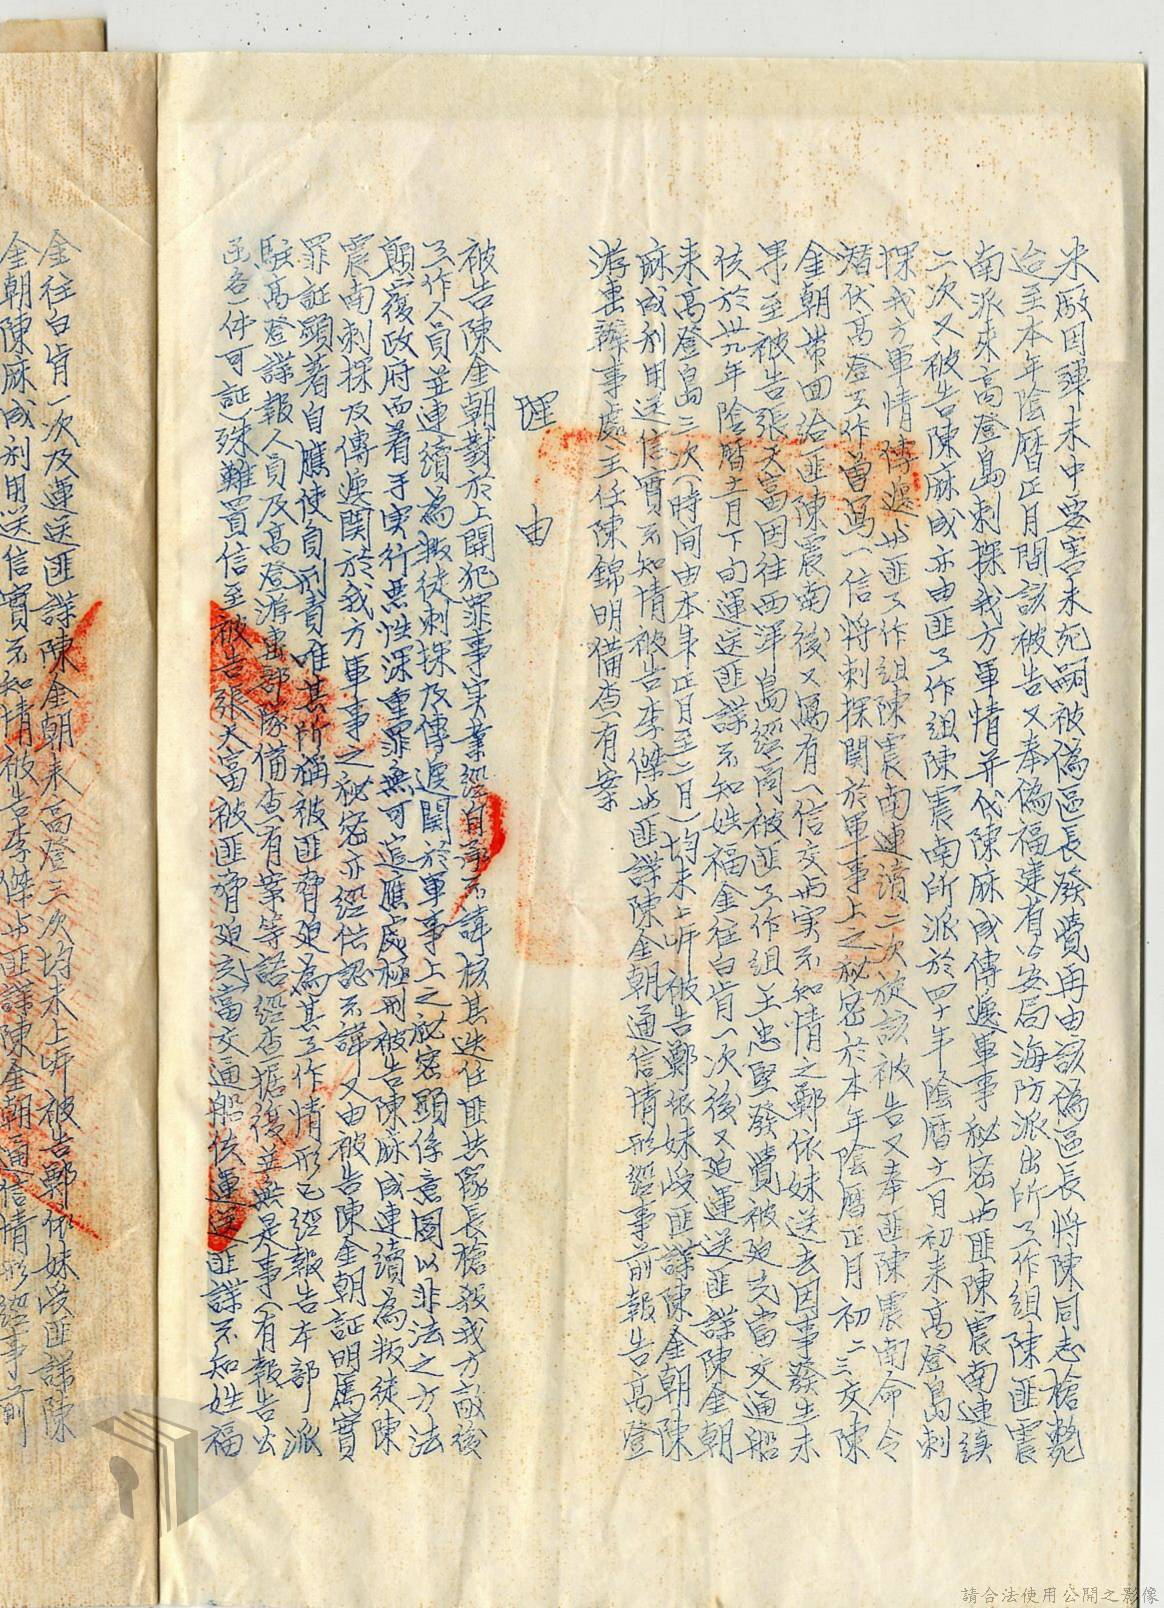 米廠因彈未中要害未死嗣被偽區長發覺再由該偽區長將陳同志槍斃
迨至本年陰曆正月間該被告又奉偽福建省公安局海防派出所工作組陳匪震
南派來高登島刺探我方軍情并代陳麻成傳遞軍事秘密與匪陳震南連續
二次又被告陳麻成亦由匪工作組陳震南所派於四十年陰曆十一月初來高登島刺
探我方軍情傳遞與匪工作組陳震南連續二次旋該被告又奉匪陳震南命令
潛伏高登工作曾寫一信將刺探關於軍事上之秘密於本年陰曆正月初二三交陳
金朝帶回給匪陳震南後又寫有一信交與實不知情之鄭依妹送去因事發生未
果至被告張天富因往西洋島經商被匪工作組王忠堅發覺被迫充當交通船
伕於卅九年陰曆十二月下旬運送匪諜不知姓福金往白肯一次後又迫運送匪諜陳金朝
來高登島三次(時間由本年正月至二月)均未上岸被告鄭依妹受匪諜陳金朝陳
麻成利用送信實不知情被告李傑與匪諜陳金朝通信情形經事前報告高登
游擊辦事處主任陳錦明備查有案
理由
被告陳金朝對於上開犯罪事實業經自承不諱核其迭任匪共隊長槍殺我方敵後
工作人員並連續為叛徒刺探及傳遞關於軍事上之秘密顯係意圖以非法之方法
顛覆政府而著手實行惡性深重罪無可逭應處極刑被告陳麻成連續為叛徒陳
震南刺探及傳遞關於我方軍事之秘密亦經供認不諱又由被告陳金朝証明屬實
罪証顯著自應使負刑責唯其所稱被匪脅迫為其工作情形已經報告本部派
駐高登諜報人員及高登游擊部隊備查有案等語經查据後並無是事(有報告公
函各一件可証)殊難置信至被告張天富被匪脅迫充當交通船伕運送匪諜不知姓福
金往白肯一次及運送匪諜陳金朝來高登三次均未上岸被告鄭依妹受匪諜陳
金朝陳麻成利用送信實不知情被告李傑與匪諜陳金朝通信情形經事前
請合法使用公開之影像